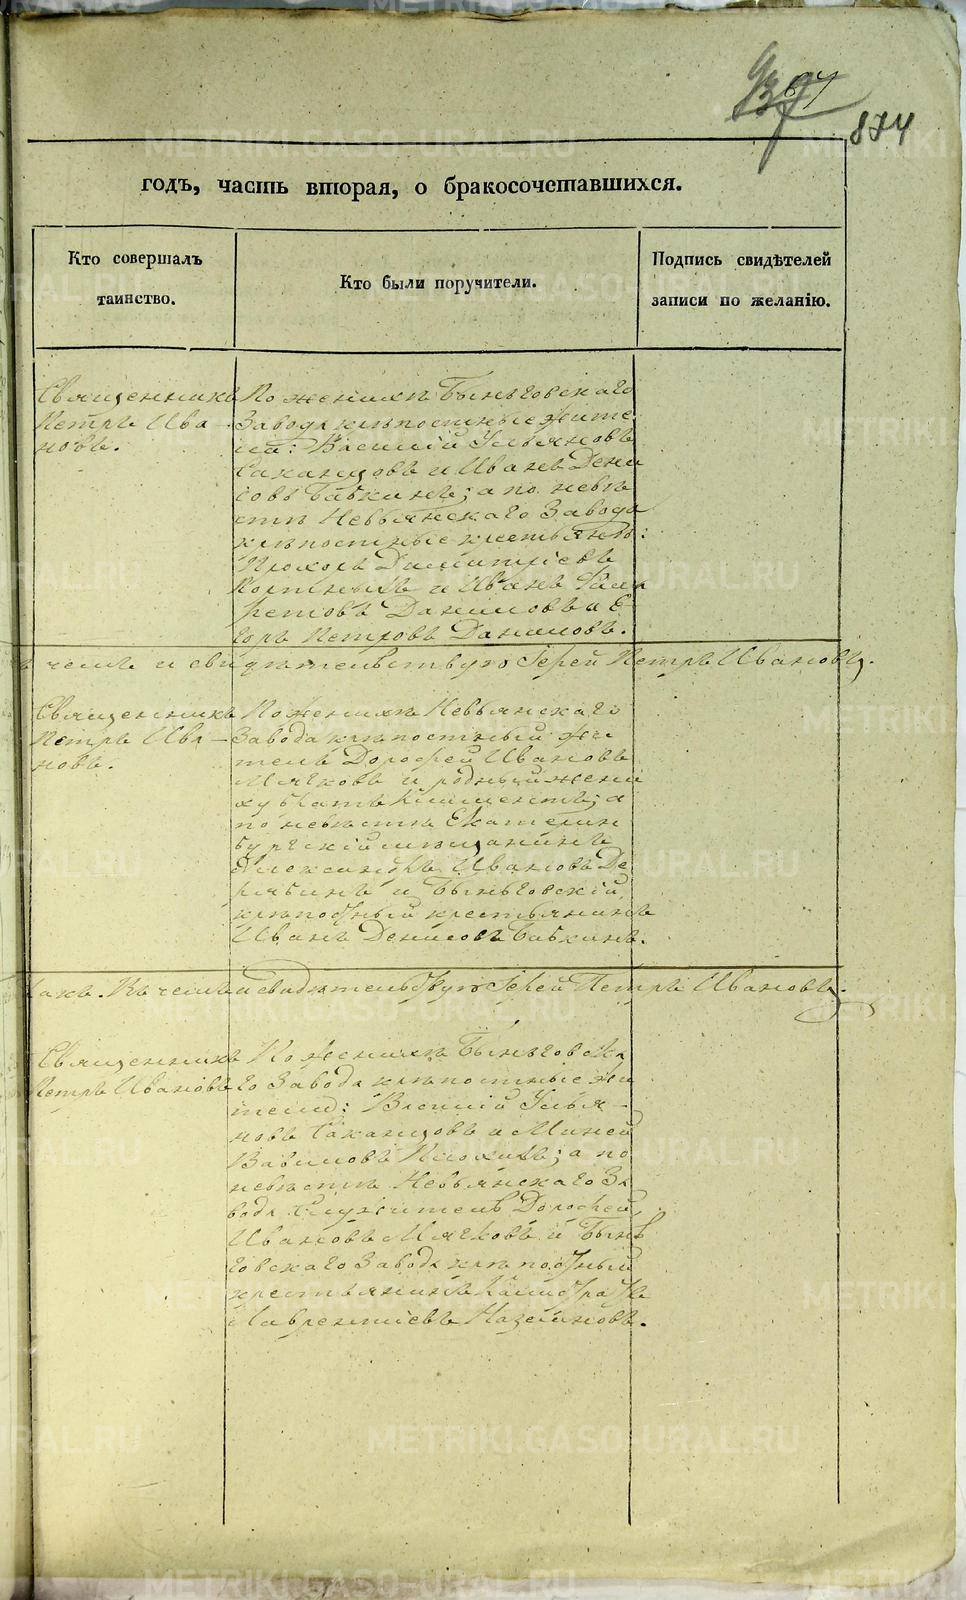 874
годъ, часть вторая, о бракосочетавшихся.
Кто совершалъ
таинство.
Кто были поручители.
Подпись свидѣтелей
записи по желанію.
Священникъ
Петръ Ива-
новъ.
По женихѣ Быньговскаго
Завода крѣпостные жите
ли: Василій Ульяновъ
Саканцовъ и Иванъ Дени
совъ Бабкинъ; а по невѣ
стѣ Невьянскаго Завода
крѣпостные крестьяне:
Прохоръ Димитріевъ
и Иванъ
Даниловъ а Е-
горъ Петровъ Даниловъ.
въ чемъ и свидѣтельствую Іерей Петръ Ивановъ.
Священникъ
Петръ Ива-
новъ.
По женихѣ Невьянскаго
Завода крѣпостный жи
тель Дорофей Ивановъ
Мягковъ и родный жени
ху братъ Климентъ; а
по невѣстѣ Екатерин
бургскій мѣщанинъ
Александръ Ивановъ Де
рябинъ и Быньговскій
крѣпостный крестьянинъ
Иванъ Денисовъ Бабкинъ.
Въ чемъ и свидѣтельствую Іерей Петръ Ивановъ.
Священникъ
Петръ Ивановъ
По женихѣ Быньговска
го Завода крѣпостные жи
тели: Василій Улья-
новъ Саканцовъ и Миней
Вавиловъ Плохихъ; а по
невѣстѣ Невьянскаго За
вода Служитель Дорофей
Ивановъ Мягковъ и Бынь
говскаго Завода крѣпостный
крестьянинъ Калистратъ
Лаврентіевъ
METRIKI.GASO-URAL.RU